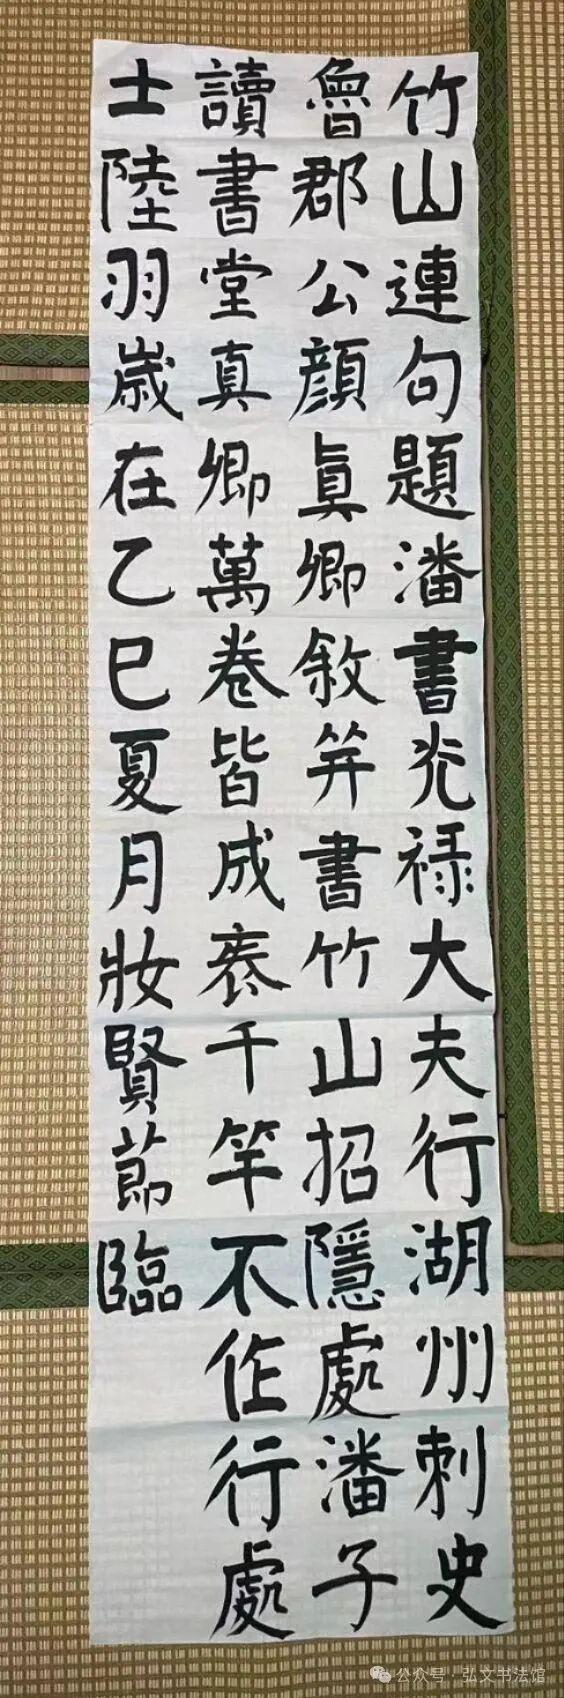 竹山連句題潘書光禄大夫行湖州刺史
魯郡公顔眞卿敘并書竹山招隱處潘子
讀書堂真卿萬卷皆成袠千竿不作行處
士陸羽歳在乙巳夏月妝賢節臨
公众号·弘文书法馆